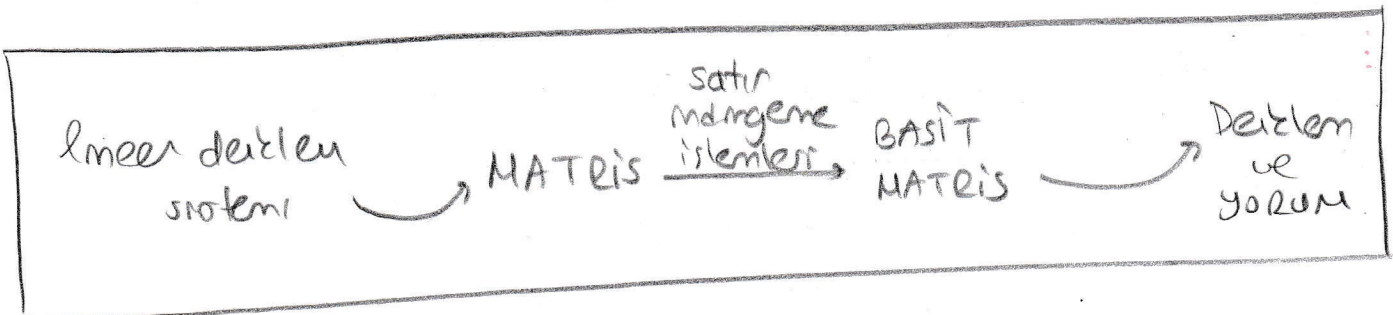 lineer denklem
sistemi
MATRİS
satır
indirgeme
işlemleri
BASİT
MATRİS
Denklem
ve
YORUM